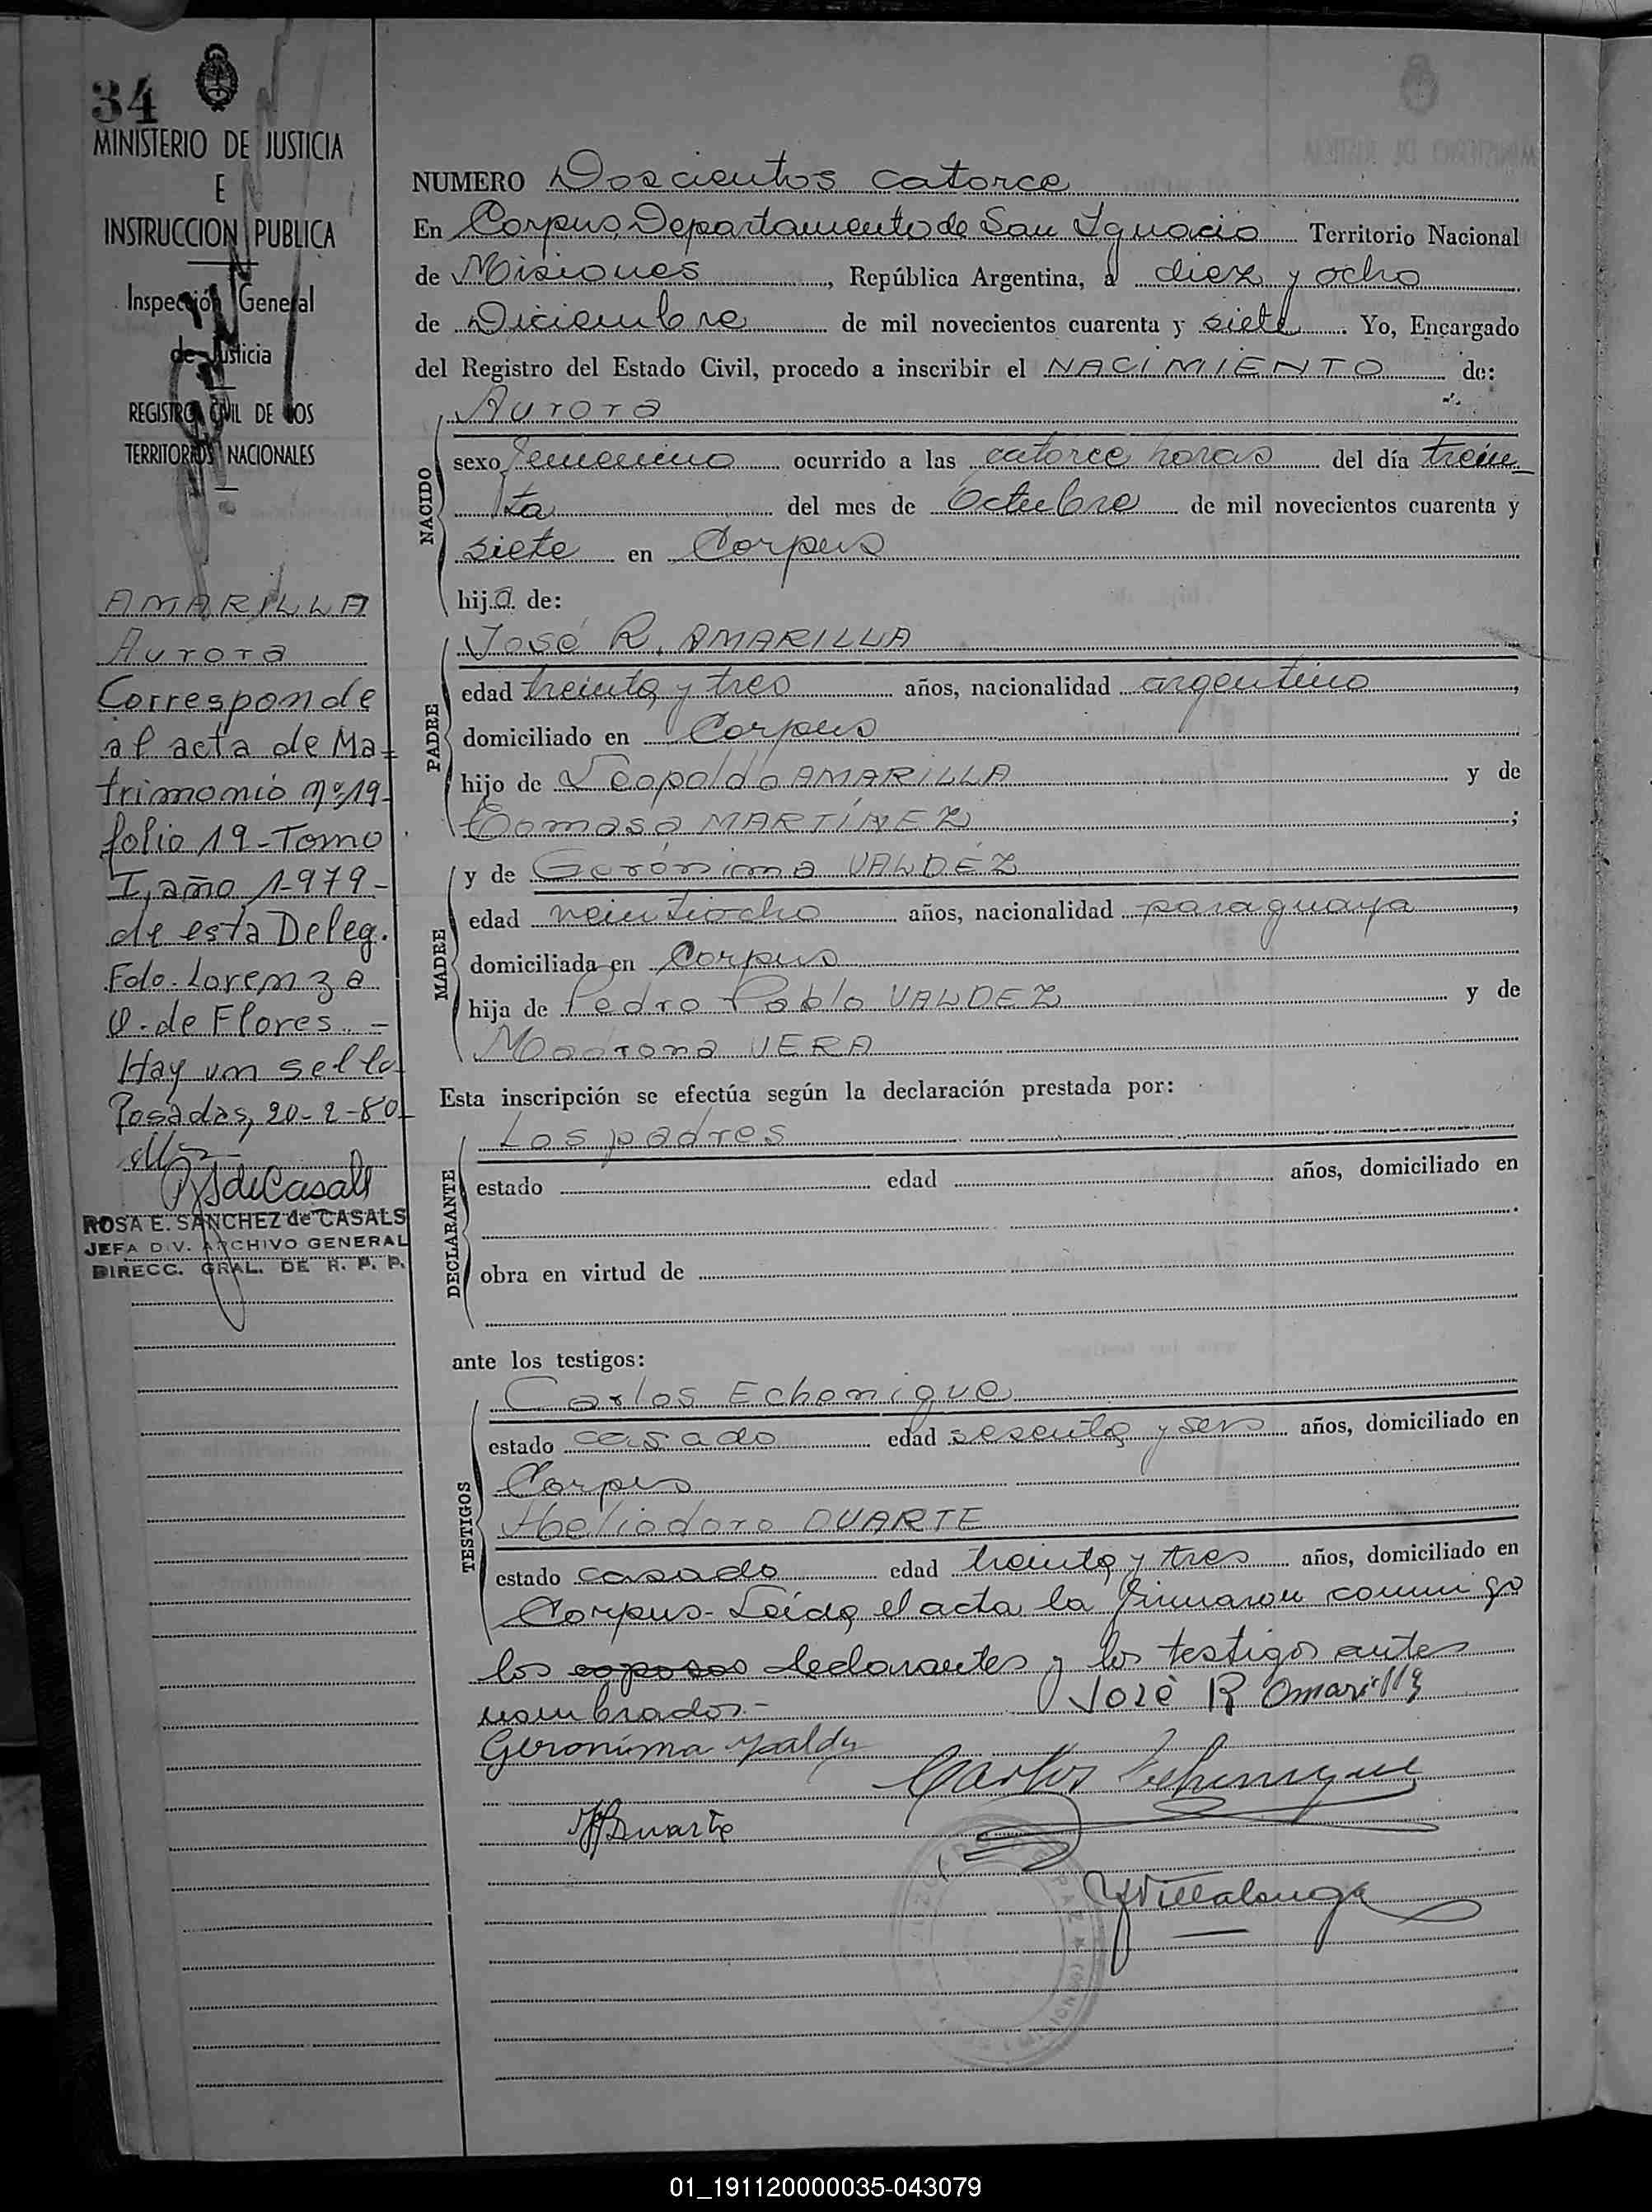 34
MINISTERIO DE JUSTICIA
E
INSTRUCCION PUBLICA
Inspección General
de Justicia
REGISTRO CIVIL DE LOS
TERRITORIOS NACIONALES
AMARILLA
Aurora
Corresponde
al acta de Ma-
trimonio nº 19-
folio 19-Tomo
I, año 1.979-
de esta Deleg.
Fdo. Lorenza
de Flores. -
Hay un sello
Posadas, 20-2-80-
ROSA E. SANCHEZ de CASALS
JEFA DIV. ARCHIVO GENERAL
DIRECC. GRAL. DE R. P. P.
NUMERO Doscientos catorce
En Corpus, Departamento de San Ignacio Territorio Nacional
de Misiones, República Argentina, a diez y ocho
de Diciembre de mil novecientos cuarenta y siete. Yo, Encargado
del Registro del Estado Civil, procedo a inscribir el NACIMIENTO de:
NACIDO
Aurora
sexo femenino ocurrido a las catorce horas del día trein-
ta del mes de Octubre de mil novecientos cuarenta y
siete en Corpus
hija de:
PADRE
José R. AMARILLA
edad treinta y tres años, nacionalidad argentino,
domiciliado en Corpus
hijo de Leopoldo AMARILLA y de
Tomasa MARTÍNEZ;
MADRE
y de Gerónima VALDÉZ
edad veintiocho años, nacionalidad paraguaya,
domiciliada en Corpus
hija de Pedro Pablo VALDEZ y de
Madrona VERA
Esta inscripción se efectúa según la declaración prestada por:
DECLARANTE
Los padres
estado edad años, domiciliado en
obra en virtud de
ante los testigos:
TESTIGOS
Carlos Echenique
estado casado edad sesenta y seis años, domiciliado en
Corpus
Heliodoro DUARTE
estado casado edad treinta y tres años, domiciliado en
Corpus- Leída el acta la firmaron conmigo
los esposos declarantes y los testigos antes
nombrados.-
José R Amarilla
Geronima Valdez
Carlos Echenique
HDuarte
Villalonga
01_191120000035-043079